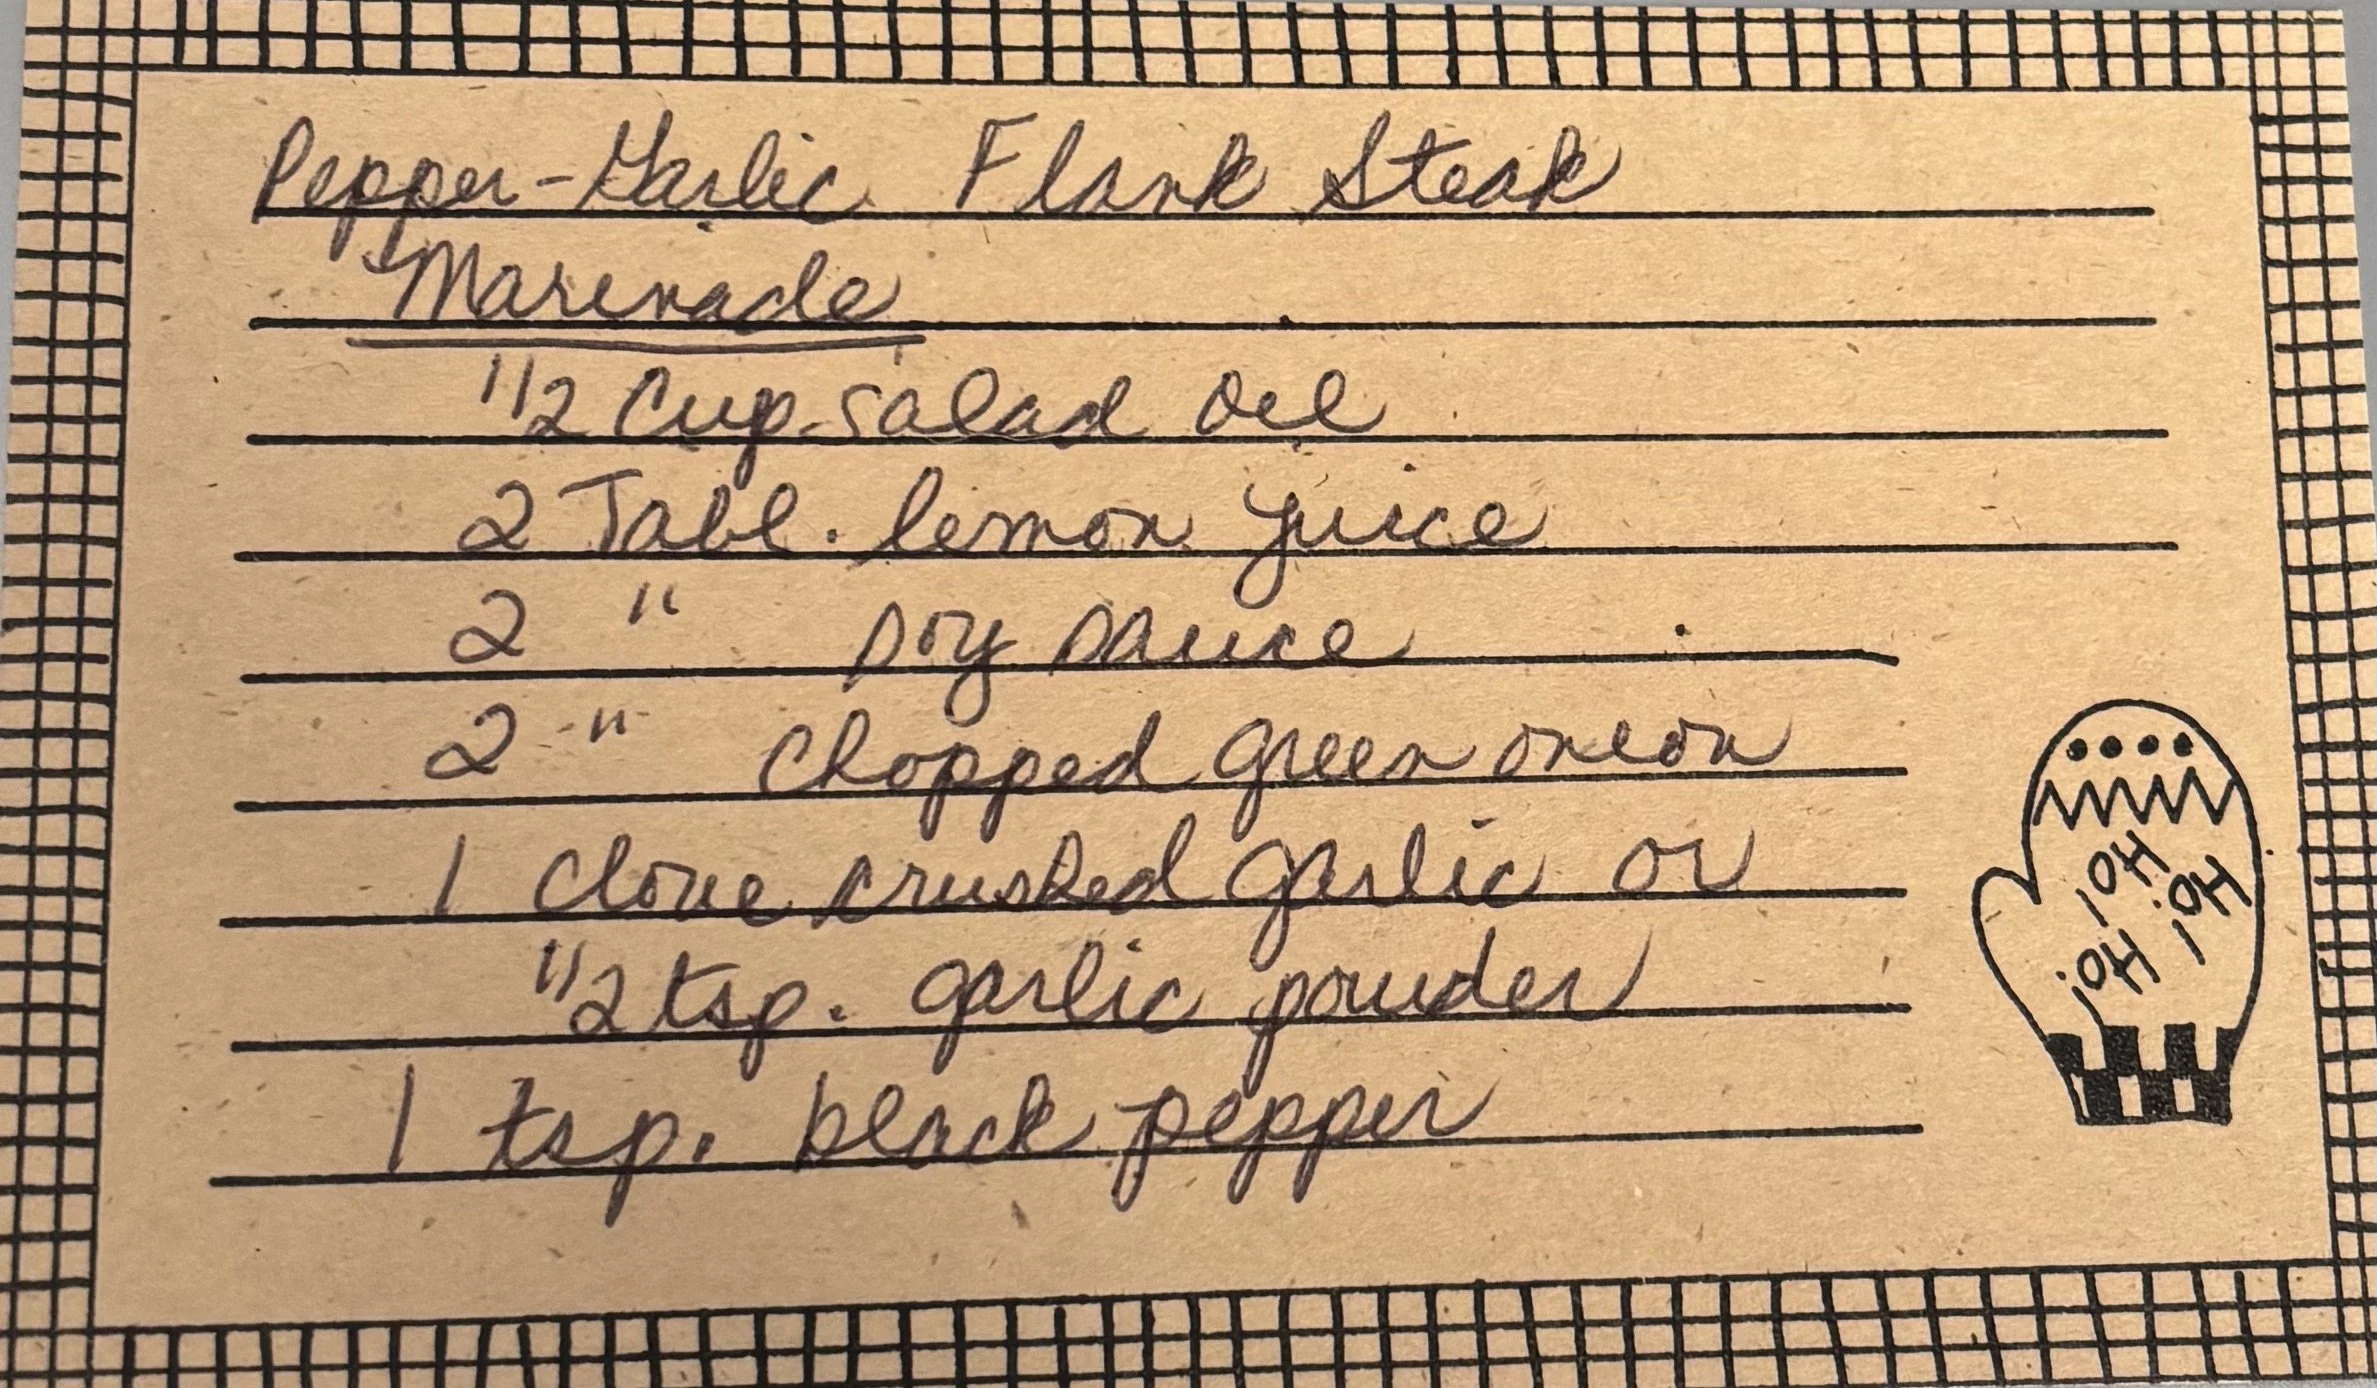 Pepper-Garlic Flank Steak
Marinade
1/2 Cup salad oil
2 Tabl. lemon juice
2 " soy sauce
2 " chopped green onion
1 clove crushed garlic or
1/2 tsp. garlic powder
1 tsp. black pepper
Hot
Hot
Hot